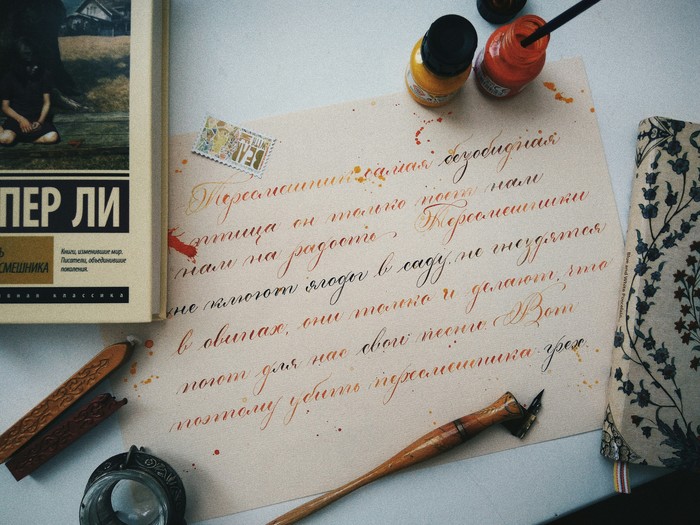 ПЕР ЛИ
СМЕШНИКА
Книги, изменившие мир.
Писатели, объединившие
поколения.
классика
Пересмешник самая безобидная
птица, он только поет нам
нам на радость. Пересмешники
не клюют ягоды в саду, не гнездятся
в овинах, они только и делают, что
поют для нас свои песни. Вот
поэтому убить пересмешника грех.